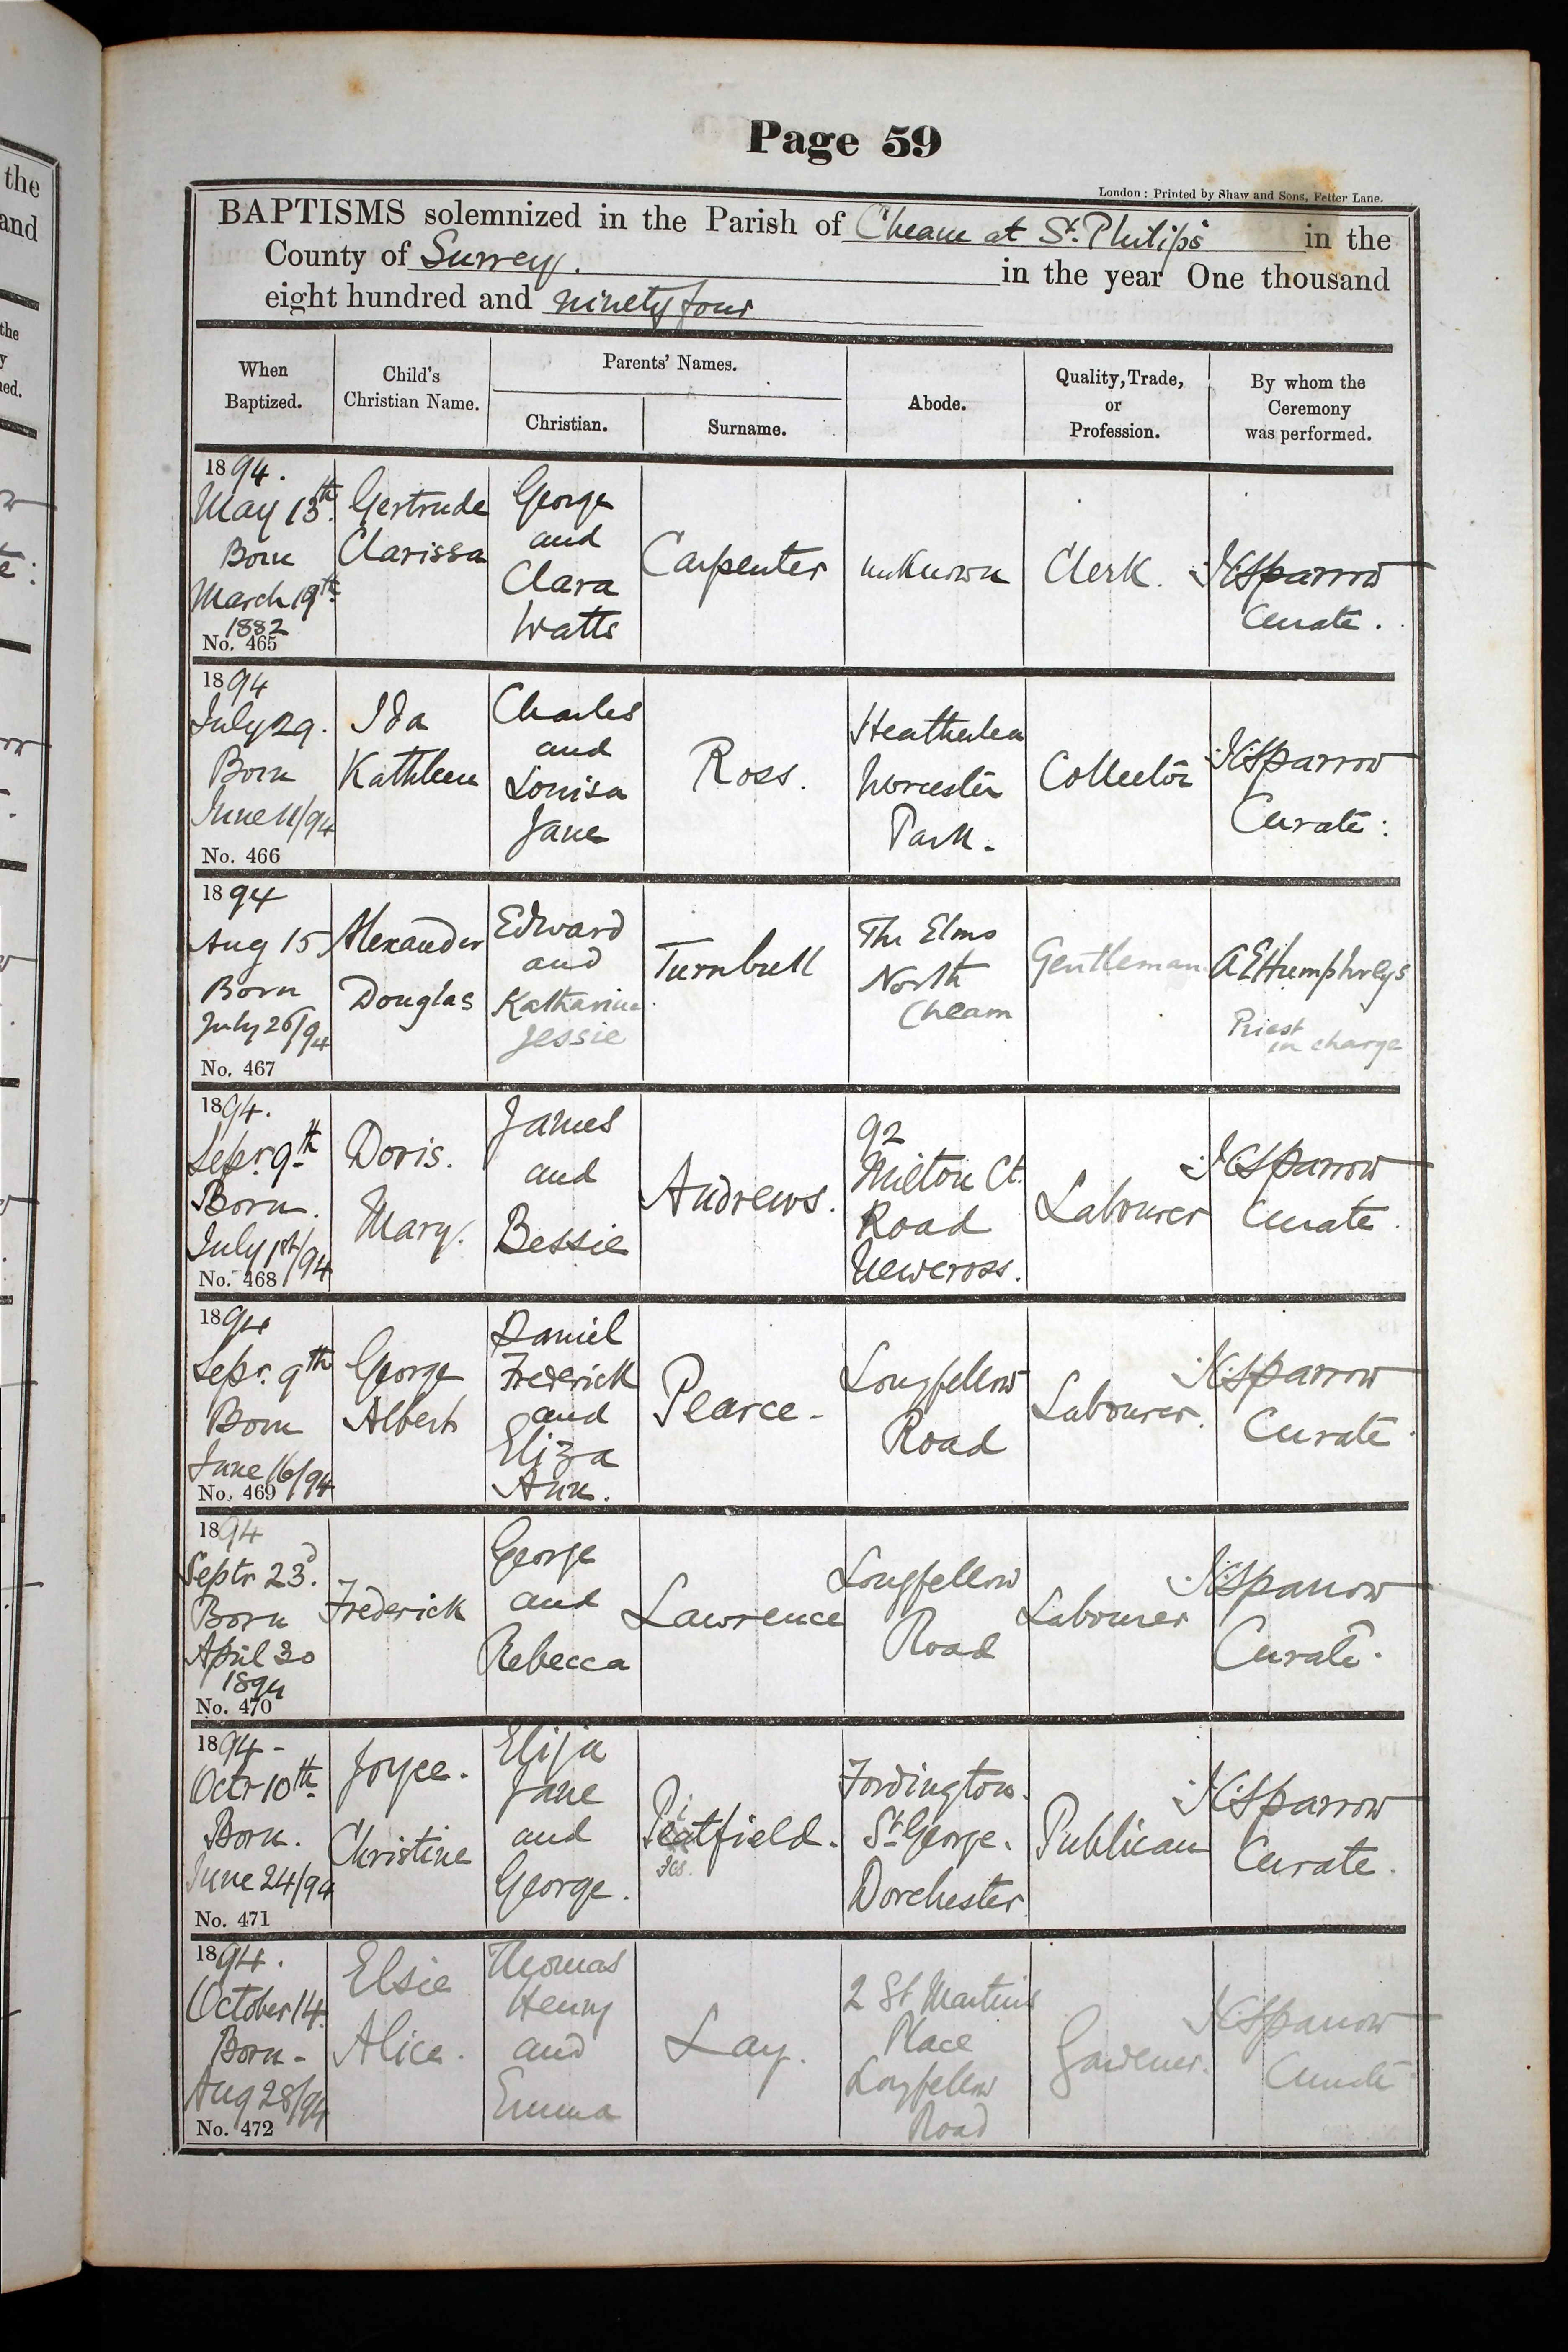 Page 59
London: Printed by Shaw and Sons, Fetter Lane.
BAPTISMS solemnized in the Parish of Cheam at St. Philips in the
County of Surrey. in the year One thousand
eight hundred and ninety four
When Baptized.
Child's Christian Name.
Parents' Names.
Christian.
Surname.
Abode.
Quality, Trade, or Profession.
By whom the Ceremony was performed.
1894.
May 13th.
Born
March 19th
1882
No. 465
Gertrude
Clarissa
George
and
Clara
Watts
Carpenter
unknown
Clerk.
Sparrow
Curate.
1894
July 29.
Born
June 11/94
No. 466
Ida
Kathleen
Charles
and
Louisa
Jane
Ross.
Heatherlea
Worcester
Park.
Collector
Sparrow
Curate:
1894
Aug 15
Born
July 26/94
No. 467
Alexander
Douglas
Edward
and
Katharine
Jessie
Turnbull
The Elms
North
Cheam
Gentleman
A E Humphreys
Priest
in charge
1894.
Sepr. 9th
Born.
July 1st/94
No. 468
Doris.
Mary.
James
and
Bessie
Andrews.
92
Milton Ct.
Road
Newcross.
Labourer
Sparrow
Curate.
1894
Sepr. 9th
Born
June 16/94
No. 469
George
Albert
Daniel
Frederick
and
Eliza
Ann.
Pearce.
Longfellow
Road
Labourer.
Sparrow
Curate
1894
Septr 23d.
Born
April 30
1894
No. 470
Frederick
George
and
Rebecca
Lawrence
Longfellow
Road
Labourer
Sparrow
Curate.
1894-
Octr 10th
Born.
June 24/94
No. 471
Joyce.
Christine
Eliza
Jane
and
George.
Pitfield.
Fordington.
St. George.
Dorchester
Publican
Sparrow
Curate.
1894.
October 14.
Born-
Aug 28/94
No. 472
Elsie
Alice.
Thomas
Henry
and
Emma
Lay.
2 St Martins
Place
Longfellow
Road
Gardener.
Sparrow
Curate